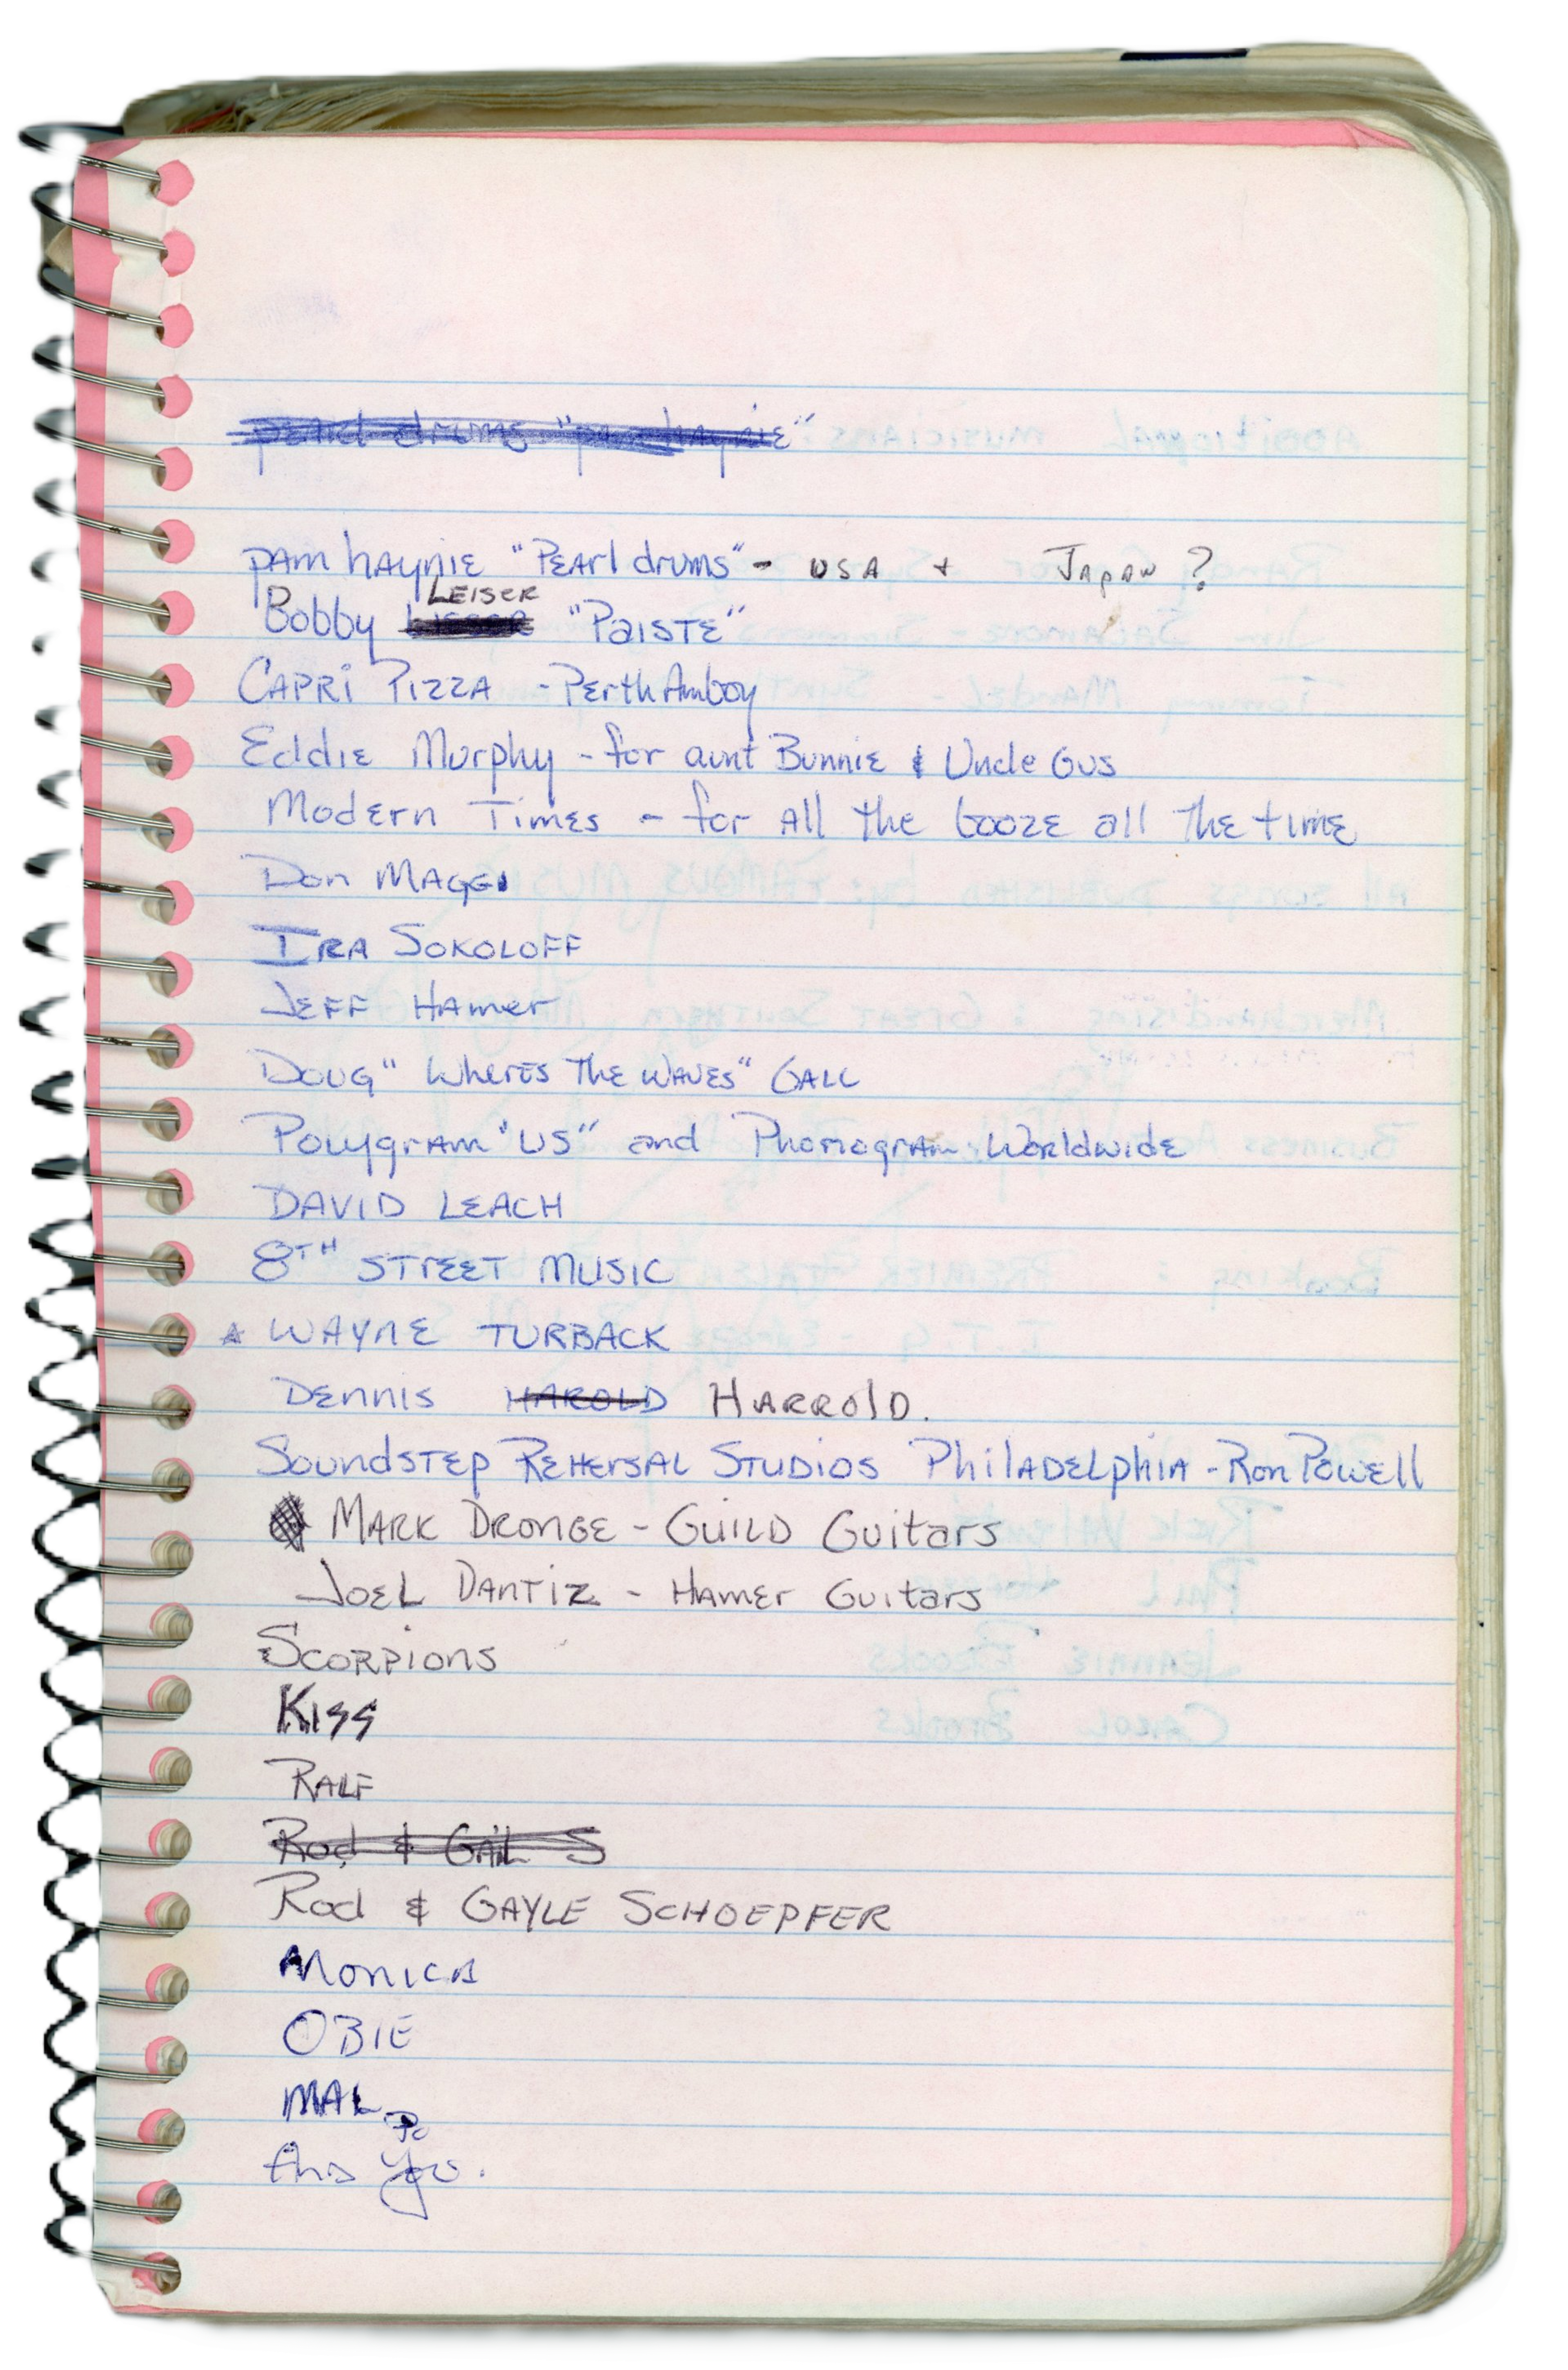 pearl drums "pam haynie"
pam haynie "Pearl drums" - USA + Japan ?
LEISER
Bobby "Paiste"
Capri Pizza - Perth Amboy
Eddie Murphy - for aunt Bunnie & Uncle Gus
Modern Times - for all the booze all the time
Don Maggi
Ira Sokoloff
Jeff Hamer
Doug "Wheres the waves" Gall
Polygram "US" and Phonogram Worldwide
DAVID LEACH
8TH STREET MUSIC
☆ WAYNE TURBACK
DENNIS HAROLD HARROLD.
Soundstep Rehersal Studios Philadelphia - Ron Powell
Mark Dronge - Guild Guitars
Joel Dantiz - Hamer Guitars
Scorpions
Kiss
Ralf
Rod & Gail S
Rod & Gayle Schoepfer
Monica
OBIE
MAL
And You.